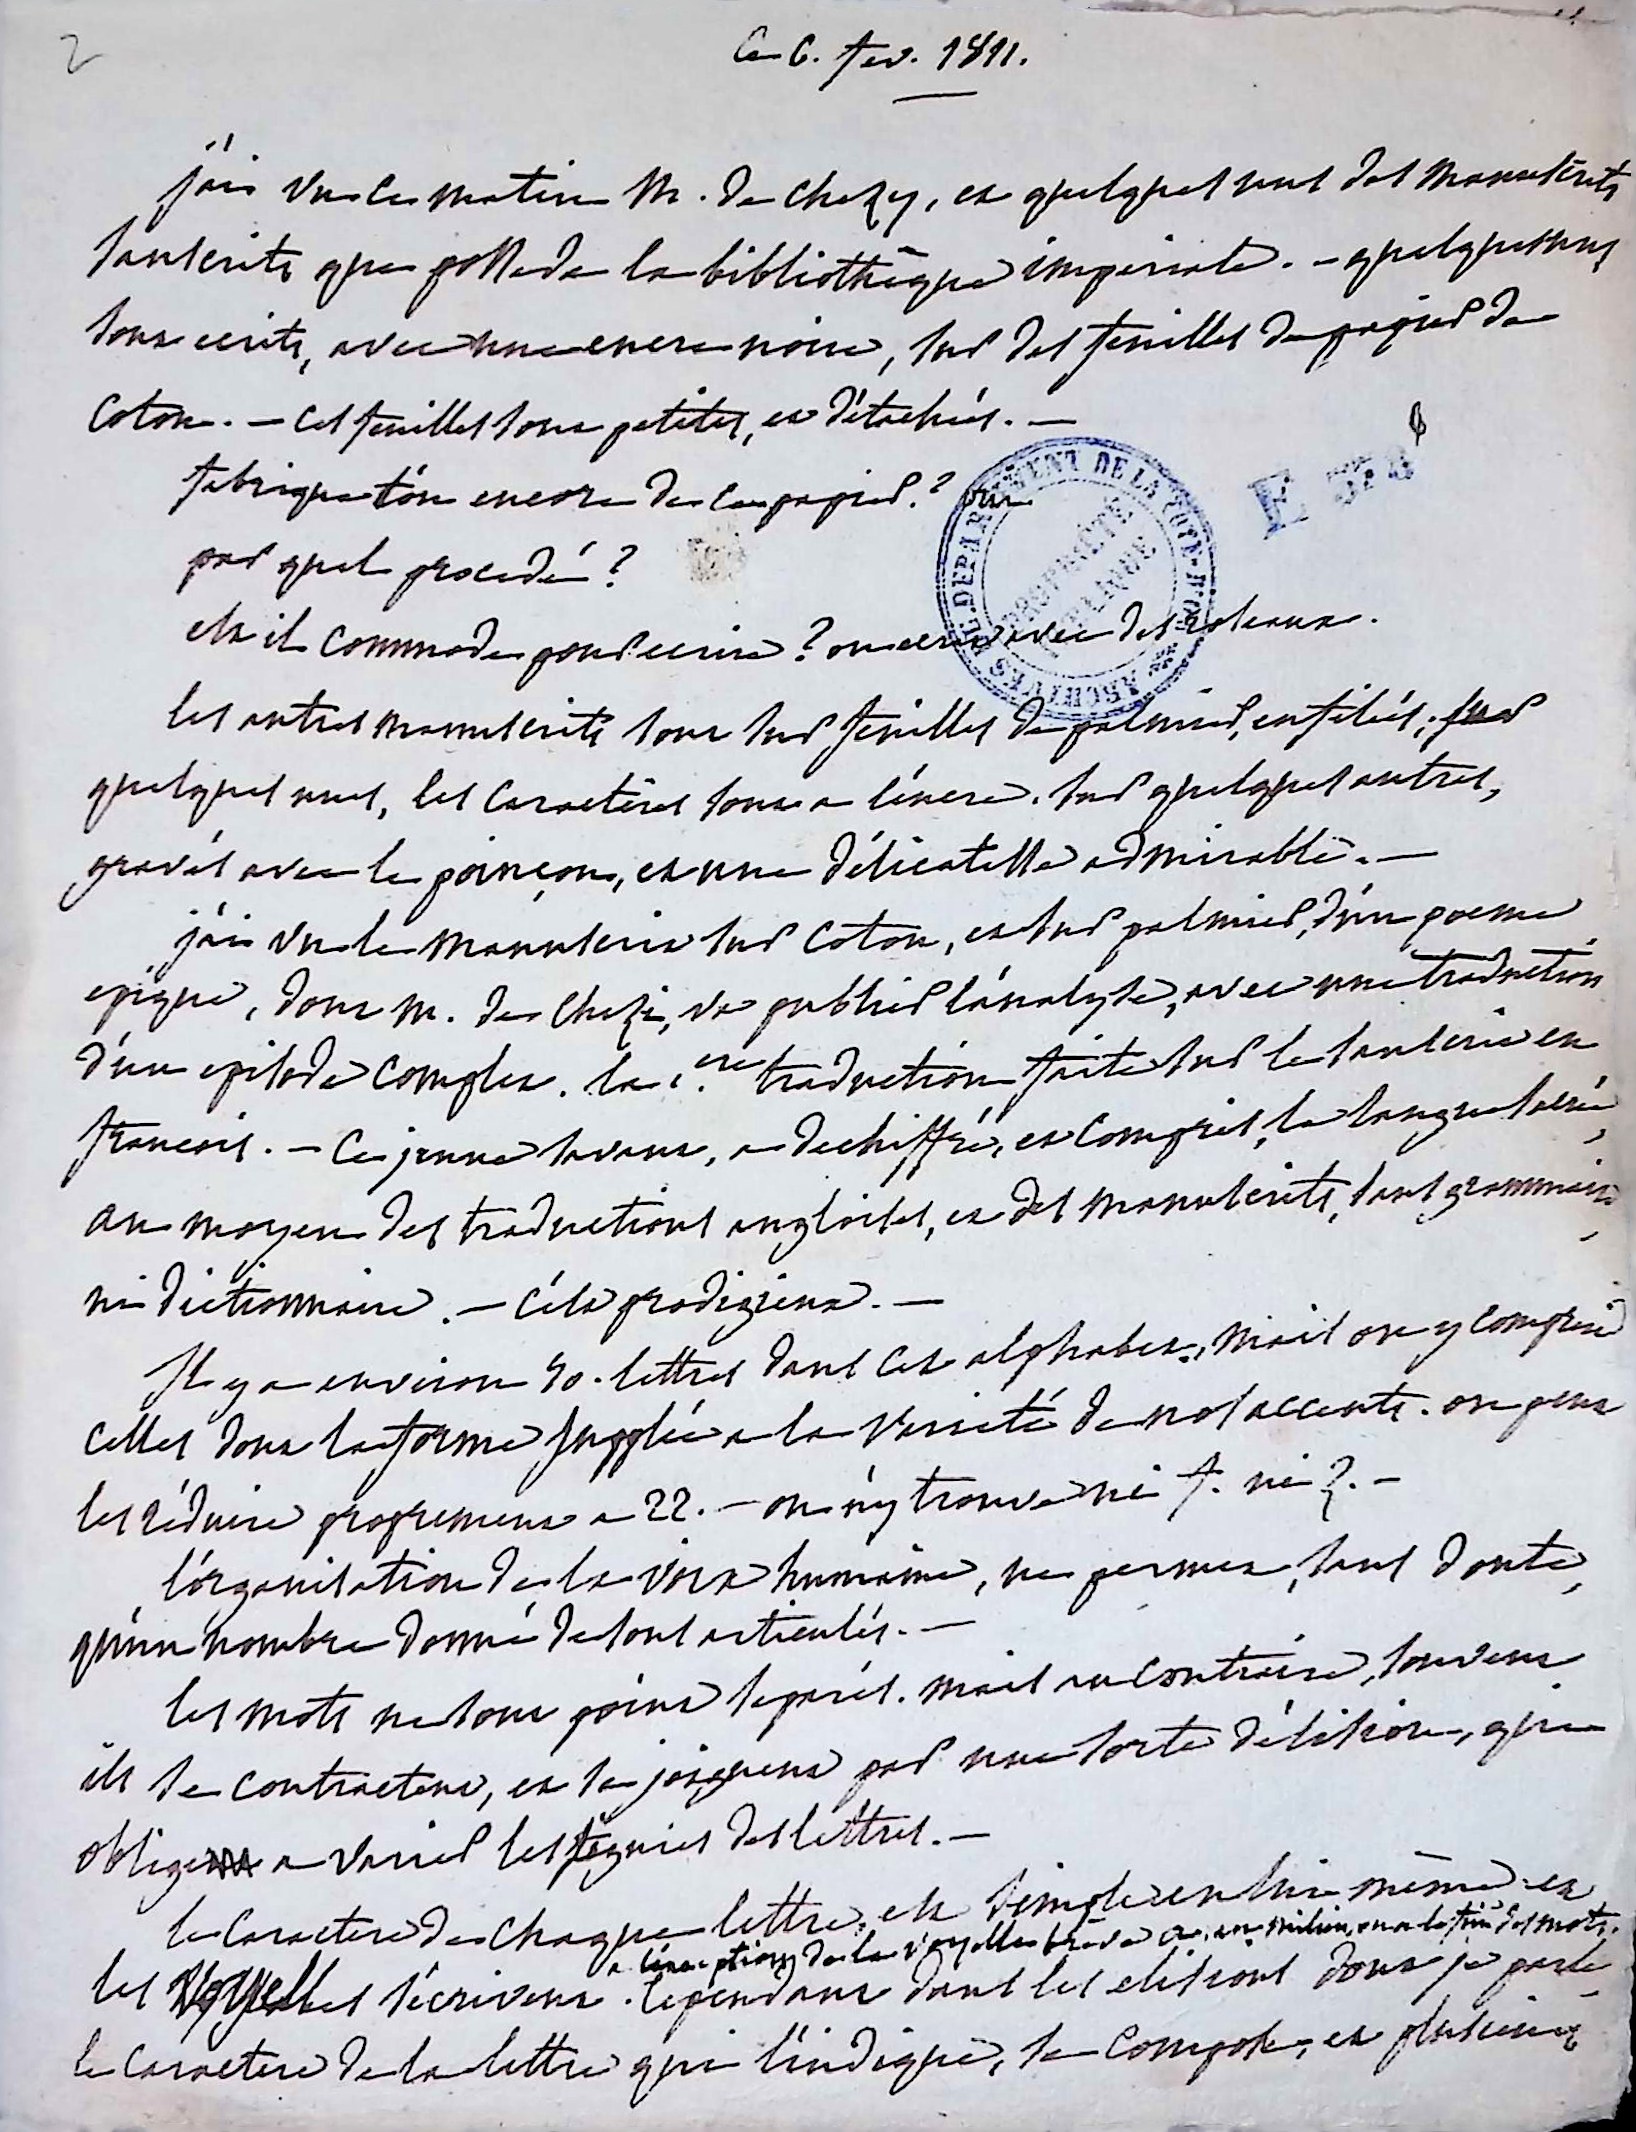 2
Ce 6. fev. 1811.
j'ai vu ce matin M. de Chezy, et quelques uns des manuscrits
sanscrits que possede la bibliothèque imperiale. – quelques uns
sont ecrits, avec une encre noire, sur des feuilles de papier de
coton. – ces feuilles sont petites, et détachées. –
fabrique t'on encore de ce papier ? oui
par quel procedé ?
est il commode pour ecrire ? on ecrit avec des roseaux.
les autres manuscrits sont sur feuilles de palmier, enfilées, sur
quelques unes, les caractères sont a l'encre. sur quelques autres,
gravés avec le poinçon, et une délicatesse admirable. –
j'ai vu le manuscrit sur coton, et sur palmier, d'un poeme
epique, dont M. de Chezi, va publier l'analyse, avec une traduction
d'un episode complet. la 1.ere traduction faite sur le sanscrit en
francois. – Ce jeune savant, a dechiffré, et compris, la langue sacrée,
au moyen des traductions angloises, et des manuscrits, sans grammaire,
ni dictionnaire. – c'est prodigieux. –
Il y a environ 50. lettres dans cet alphabet, mais on y comprend
celles dont la forme supplée a la varieté de nos accents. on peut
les réduire proprement a 22. – on n'y trouve ni f. ni z. –
l'organisation de la voix humaine, ne permet, sans doute,
qu'un nombre donné de sons articulés. –
les mots ne sont point separés. mais au contraire, souvent
ils se contractent, et se joignent par une sorte d'élision, qui
oblige a varier les figures des lettres. –
le caractere de chaque lettre, est simple en lui même et
a l'exception de la voyelle brève a, au milieu, ou a la fin des mots.
les voyelles s'écrivent. cependant dans les elisions dont je parle
le caractere de la lettre qui l'indique, se compose, et plusieurs
ARCHIVES DU DEPARTEMENT DE LA COTE-D'OR
PROPRIÉTÉ